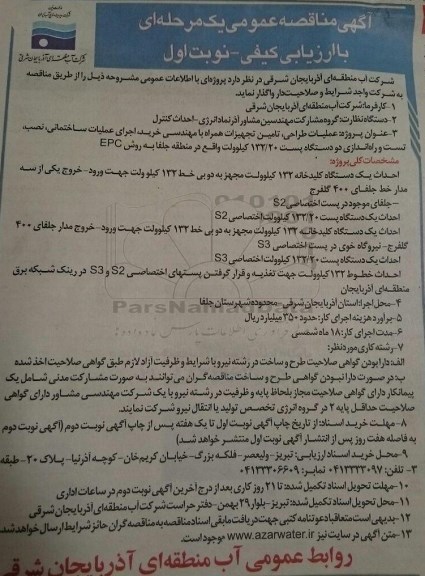 آگهی مناقصه عمومی یک مرحله‌ای
با ارزیابی کیفی - نوبت اول
شرکت آب منطقه‌ای آذربایجان شرقی
شرکت آب منطقه‌ای آذربایجان شرقی در نظر دارد پروژه‌ای با اطلاعات عمومی مشروحه ذیل را از طریق مناقصه
به شرکت واجد شرایط و صلاحیت‌دار واگذار نماید.
۱- کارفرما: شرکت آب منطقه‌ای آذربایجان شرقی
۲- دستگاه نظارت: گروه مشارکت مهندسین مشاور آذرنماد انرژی - احداث کنترل
۳- عنوان پروژه: عملیات طراحی، تامین تجهیزات همراه با مهندسی خرید، اجرای عملیات ساختمانی، نصب،
تست و راه‌اندازی دو دستگاه پست ۱۳۲/۲۰ کیلوولت واقع در منطقه جلفا به روش EPC
مشخصات کلی پروژه:
احداث یک دستگاه کلیدخانه ۱۳۲ کیلوولت مجهز به دو بی خط ۱۳۲ کیلو ولت جهت ورود - خروج یکی از سه
مدار خط جلفای ۴۰۰ گلفرج
- جلفای موجود در پست اختصاصی S2
احداث یک دستگاه پست ۱۳۲/۲۰ کیلوولت اختصاصی S2
احداث یک دستگاه کلیدخانه ۱۳۲ کیلوولت مجهز به دو بی خط ۱۳۲ کیلوولت جهت ورود - خروج مدار جلفای ۴۰۰
گلفرج - نیروگاه خوی در پست اختصاصی S3
احداث یک دستگاه پست ۱۳۲/۲۰ کیلوولت اختصاصی S3
احداث خطوط ۱۳۲ کیلوولت جهت تغذیه و قرار گرفتن پستهای اختصاصی S2 و S3 در رینگ شبکه برق
منطقه‌ای آذربایجان
۴- محل اجرا: استان آذربایجان شرقی - محدوده شهرستان جلفا
۵- برآورد هزینه اجرای کار: حدود ۳۵۰ میلیارد ریال
۶- مدت اجرای کار: ۱۸ ماه شمسی
۷- رشته کاری مورد نظر:
الف: دارا بودن گواهی صلاحیت طرح و ساخت در رشته نیرو با شرایط و ظرفیت آزاد لازم طبق گواهی صلاحیت اخذ شده
ب: در صورت دارا نبودن گواهی طرح و ساخت مناقصه‌گران می‌توانند به صورت مشارکت مدنی شامل یک
پیمانکار دارای گواهی صلاحیت مجاز بلحاظ پایه و ظرفیت در رشته نیرو با یک شرکت مهندسی مشاور دارای گواهی
صلاحیت حداقل پایه ۲ در گروه انرژی تخصص تولید یا انتقال نیرو شرکت نمایند.
۸- مهلت خرید اسناد: از تاریخ چاپ آگهی نوبت اول تا یک هفته پس از چاپ آگهی نوبت دوم (آگهی نوبت دوم
به فاصله هفت روز پس از انتشار آگهی نوبت اول منتشر خواهد شد)
۹- محل خرید اسناد ارزیابی: تبریز - ولیعصر - فلکه بزرگ - خیابان کریم‌خان - کوچه آذرنیا - پلاک ۲۰ - طبقه
۳ - تلفن: ۰۴۱۳۳۳۳۰۹۷ نمابر: ۰۴۱۳۳۳۰۶۶۰۹
۱۰- مهلت تحویل اسناد تکمیل شده: تا ۲۱ روز کاری بعد از درج آخرین آگهی نوبت دوم در ساعات اداری
۱۱- محل تحویل اسناد تکمیل شده: تبریز - بلوار ۲۹ بهمن - دفتر حراست شرکت آب منطقه‌ای آذربایجان شرقی
۱۲- بدیهی است متعاقبا دعوتنامه کتبی جهت دریافت مابقی اسناد مناقصه به مناقصه گران حائز شرایط ارسال خواهد شد.
۱۳- متن آگهی در سایت نیز www.azarwater.ir موجود است.
روابط عمومی آب منطقه‌ای آذربایجان شرقی